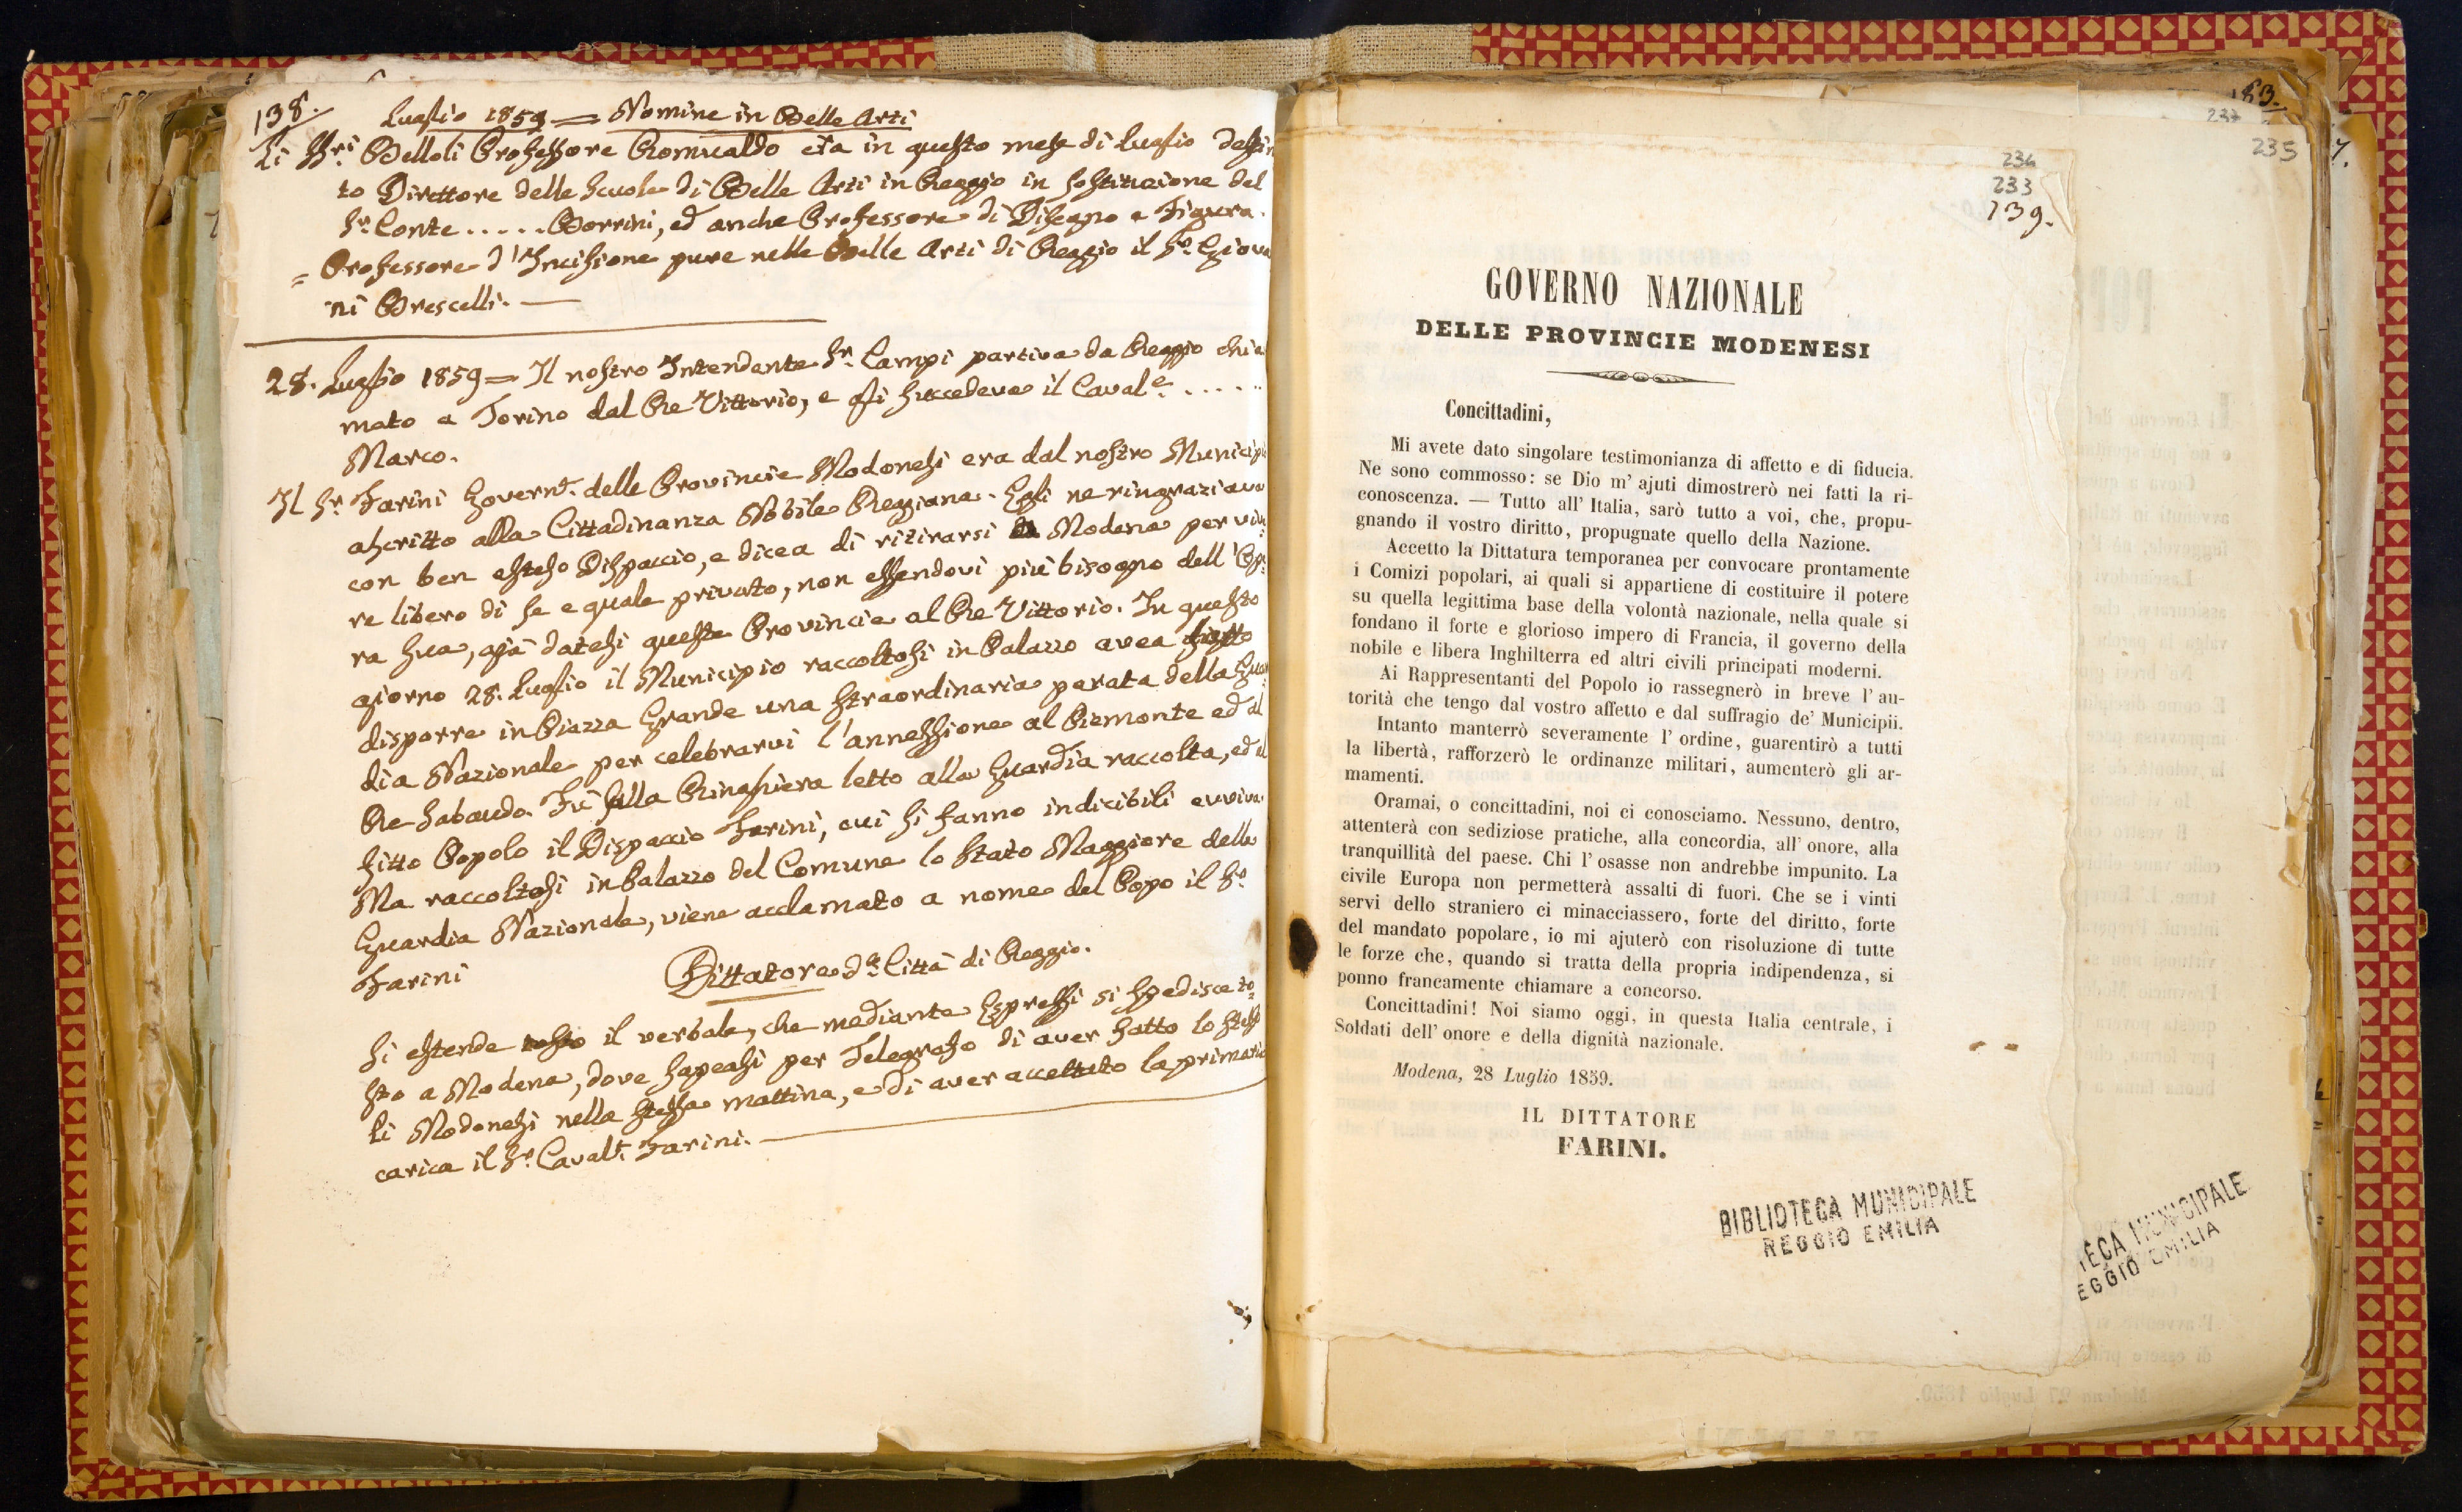 138.
Luglio 1859 = Nomine in Belle Arti
Li Sri. Belloli Professore Romualdo era in questo mese di Luglio
to Direttore delle Scuole di Belle Arti in Reggio in sostituzione del
Sr. Conte ..... Borrini, ed anche Professore di Disegno e Figura.
= Professore d'Incisione pure nelle Belle Arti di Reggio il Sr. Giova
ni Brescelli. —
28. Luglio 1859 = Il nostro Intendente Sr. Campi partiva da Reggio chia
mato a Torino dal Re Vittorio, e gli succedeva il Caval.e ......
Marco.
Il Sr. Farini Govern.e delle Provincie Modonesi era dal nostro Municipi
ascritto alla Cittadinanza Nobile Reggiana. Egli ne ringraziava
con ben esteso Dispaccio, e dicea di ritirarsi Modena per vive
re libero di se e quale privato, non essendovi più bisogno dell'Ope:
ra sua, già datesi queste Provincie al Re Vittorio. In questo
giorno 28. Luglio il Municipio raccoltosi in Palazzo avea fatto
disporre in Piazza Grande una straordinaria parata della Guar
dia Nazionale per celebrarvi l'annessione al Piemonte ed al
Re Sabaudo. Fù sulla Ringhiera letto alla Guardia raccolta, ed al
fitto Popolo il Dispaccio Farini, cui si fanno indicibili evviva
Ma raccoltosi in Palazzo del Comune lo Stato Maggiore della
Guardia Nazionale, viene acclamato a nome del Popo il Sr.
Farini
Dittatore d.a Città di Reggio.
Si estende il verbale, che mediante Espressi si spedisce to:
sto a Modena, dove sapeasi per Telegrafo di aver fatto lo stesso
li Modonesi nella stessa mattina, e di aver accettato la primaria
carica il Sr. Caval.e Farini. —
183.
237
235
7.
234
233
139.
GOVERNO NAZIONALE
DELLE PROVINCIE MODENESI
Concittadini,
Mi avete dato singolare testimonianza di affetto e di fiducia.
Ne sono commosso: se Dio m' ajuti dimostrerò nei fatti la ri-
conoscenza. — Tutto all' Italia, sarò tutto a voi, che, propu-
gnando il vostro diritto, propugnate quello della Nazione.
Accetto la Dittatura temporanea per convocare prontamente
i Comizi popolari, ai quali si appartiene di costituire il potere
su quella legittima base della volontà nazionale, nella quale si
fondano il forte e glorioso impero di Francia, il governo della
nobile e libera Inghilterra ed altri civili principati moderni.
Ai Rappresentanti del Popolo io rassegnerò in breve l' au-
torità che tengo dal vostro affetto e dal suffragio de' Municipii.
Intanto manterrò severamente l' ordine, guarentirò a tutti
la libertà, rafforzerò le ordinanze militari, aumenterò gli ar-
mamenti.
Oramai, o concittadini, noi ci conosciamo. Nessuno, dentro,
attenterà con sediziose pratiche, alla concordia, all' onore, alla
tranquillità del paese. Chi l' osasse non andrebbe impunito. La
civile Europa non permetterà assalti di fuori. Che se i vinti
servi dello straniero ci minacciassero, forte del diritto, forte
del mandato popolare, io mi ajuterò con risoluzione di tutte
le forze che, quando si tratta della propria indipendenza, si
ponno francamente chiamare a concorso.
Concittadini! Noi siamo oggi, in questa Italia centrale, i
Soldati dell' onore e della dignità nazionale.
Modena, 28 Luglio 1859.
IL DITTATORE
FARINI.
BIBLIOTECA MUNICIPALE
REGGIO EMILIA
TECA MUNICIPALE
EGGIO EMILIA